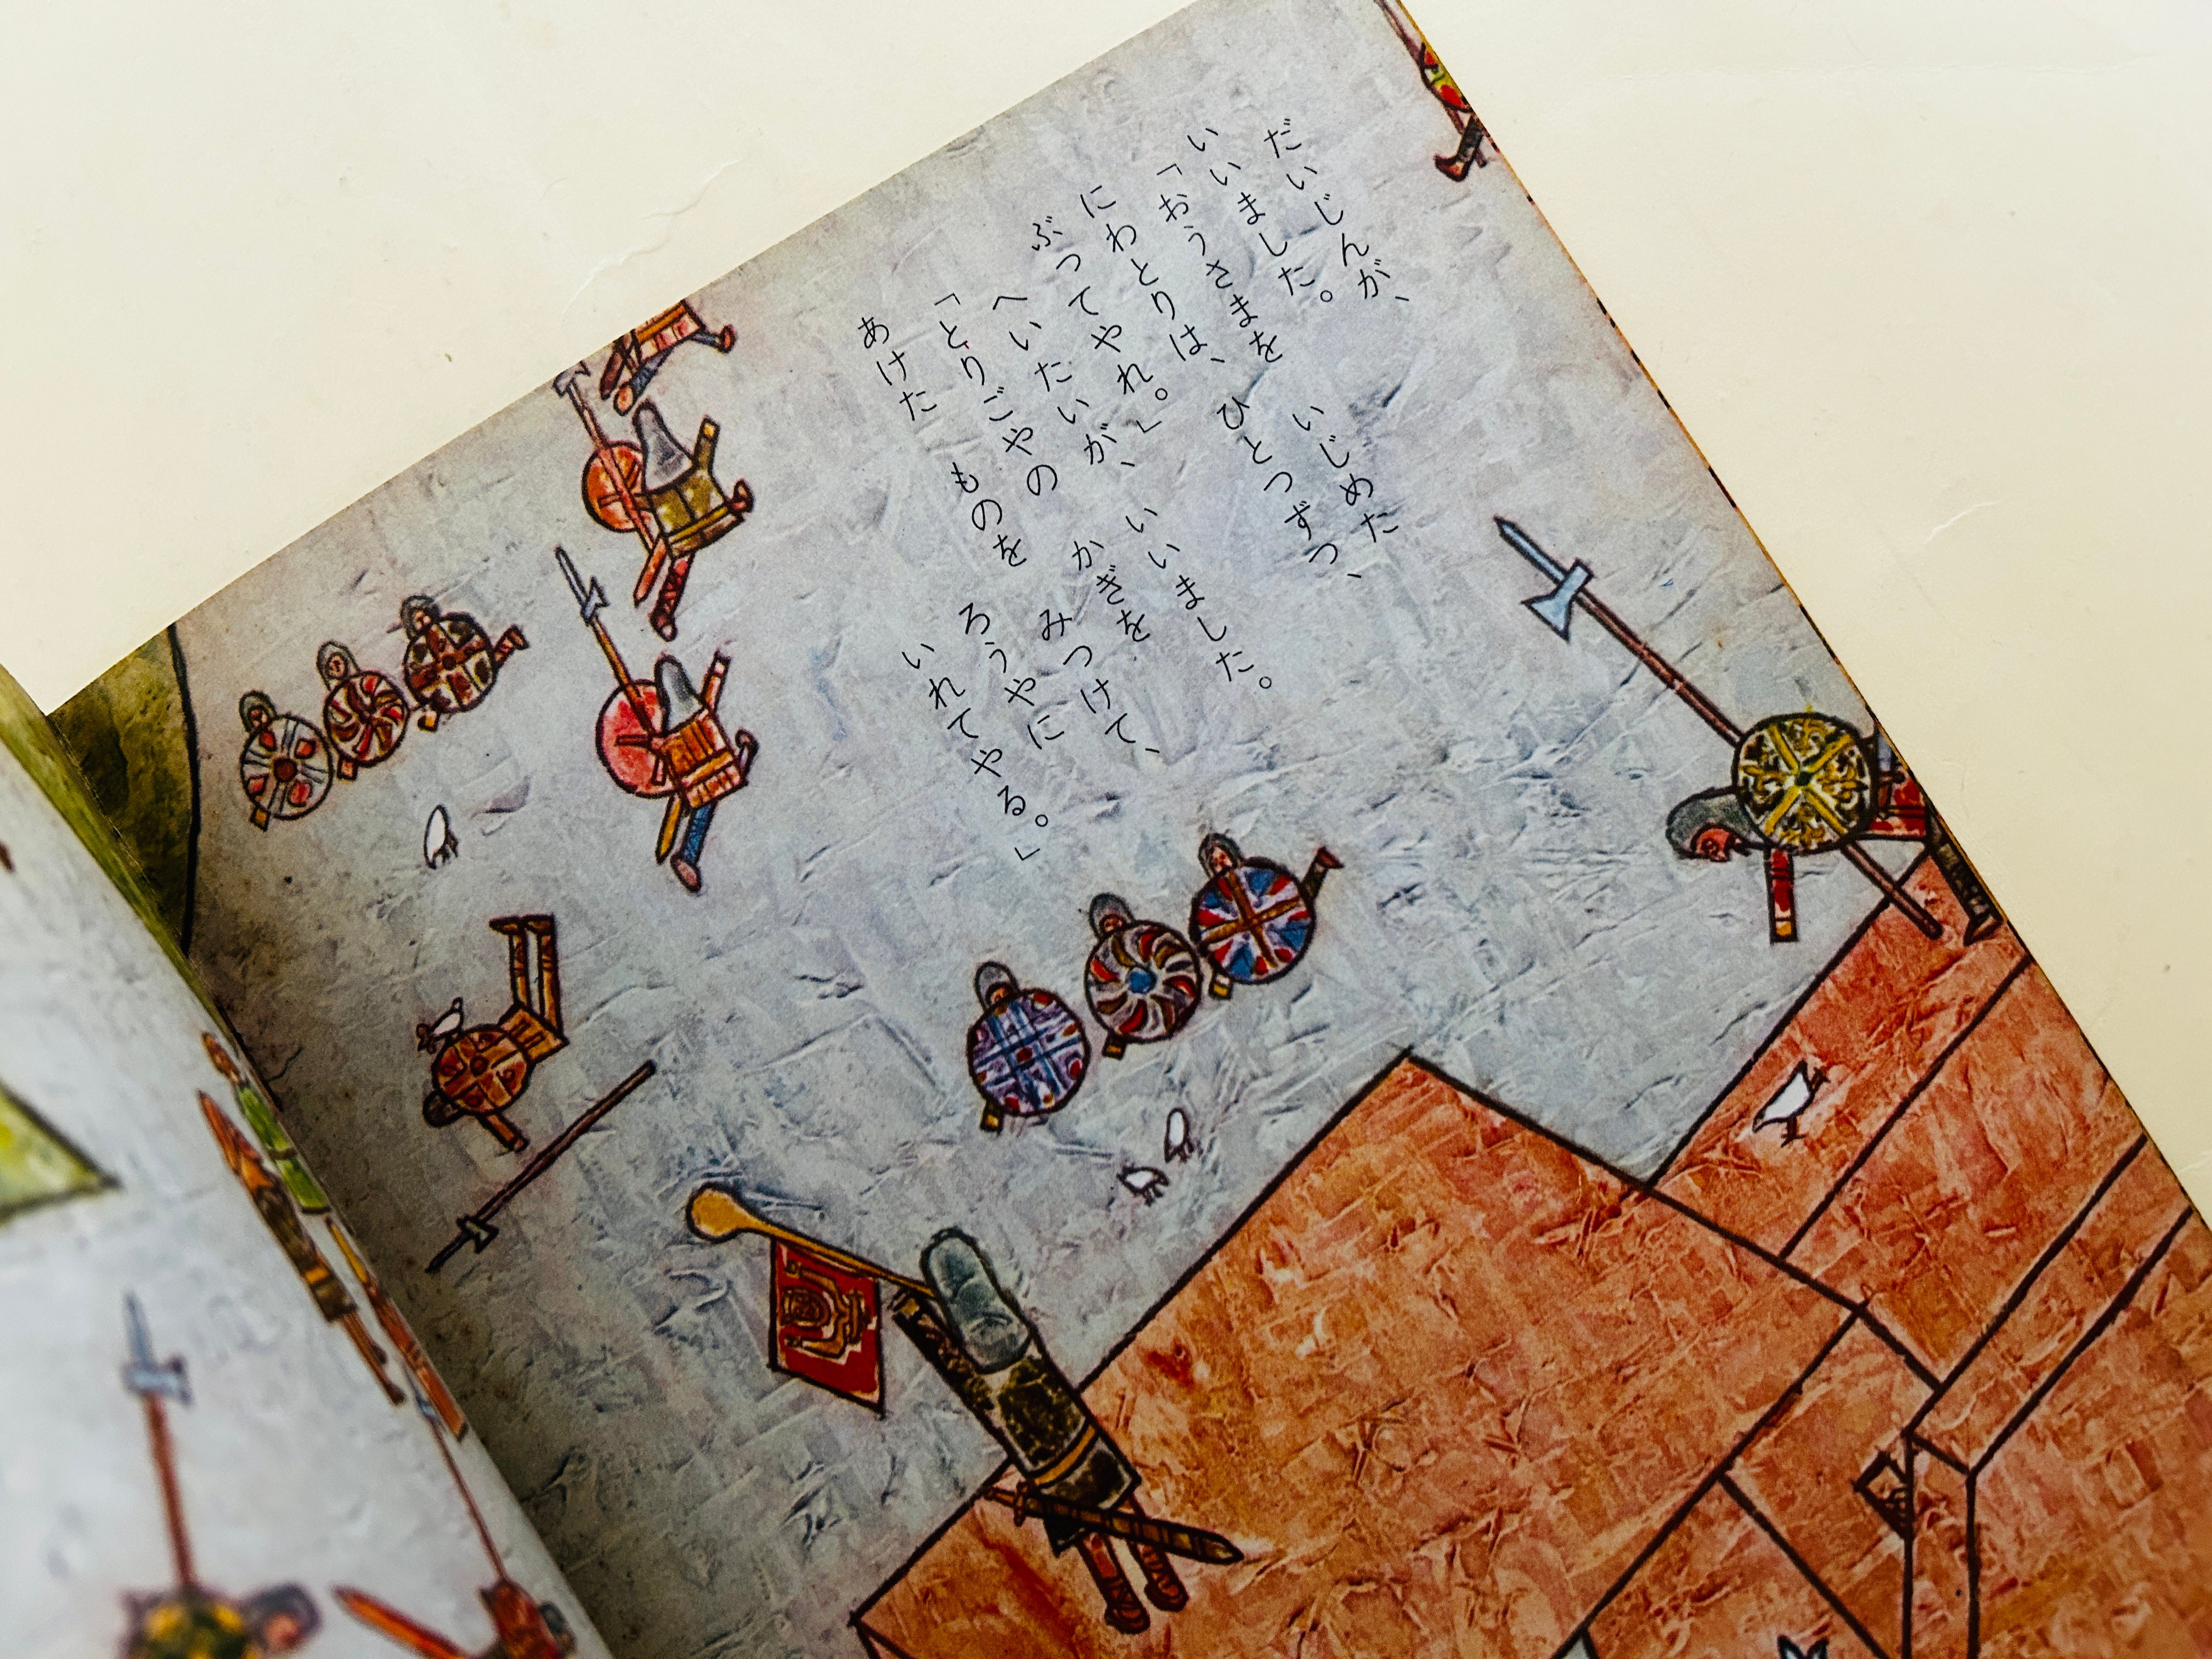 だいじんが、
いいました。
「おうさまを　いじめた
にわとりは、　ひとつずつ、
ぶってやれ。」
へいたいが、　いいました。
「とりごやの　かぎを
あけた　ものを　みつけて、
ろうやに
いれてやる。」